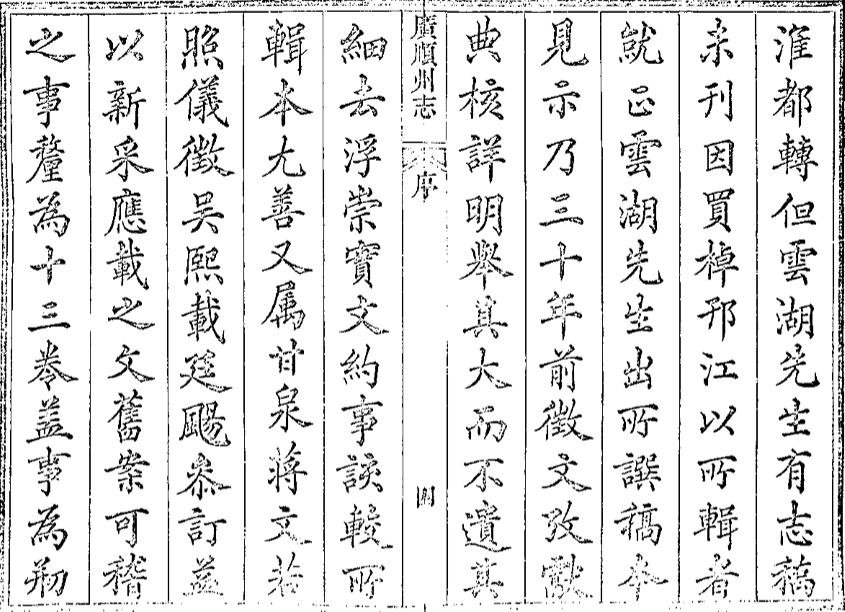 淮都轉但雲湖先生有志稿
未刊因買棹邗江以所輯者
就正雲湖先生出所譔稿本
見示乃三十年前徵文攷獻
典核詳明舉其大而不遺其
廣順州志
序
四
細去浮崇實文約事該較所
輯本尤善又属甘泉蔣文若
照儀徵吳熙載廷颺叅訂並
以新采應載之文舊案可稽
之事釐為十三卷盖事為剏